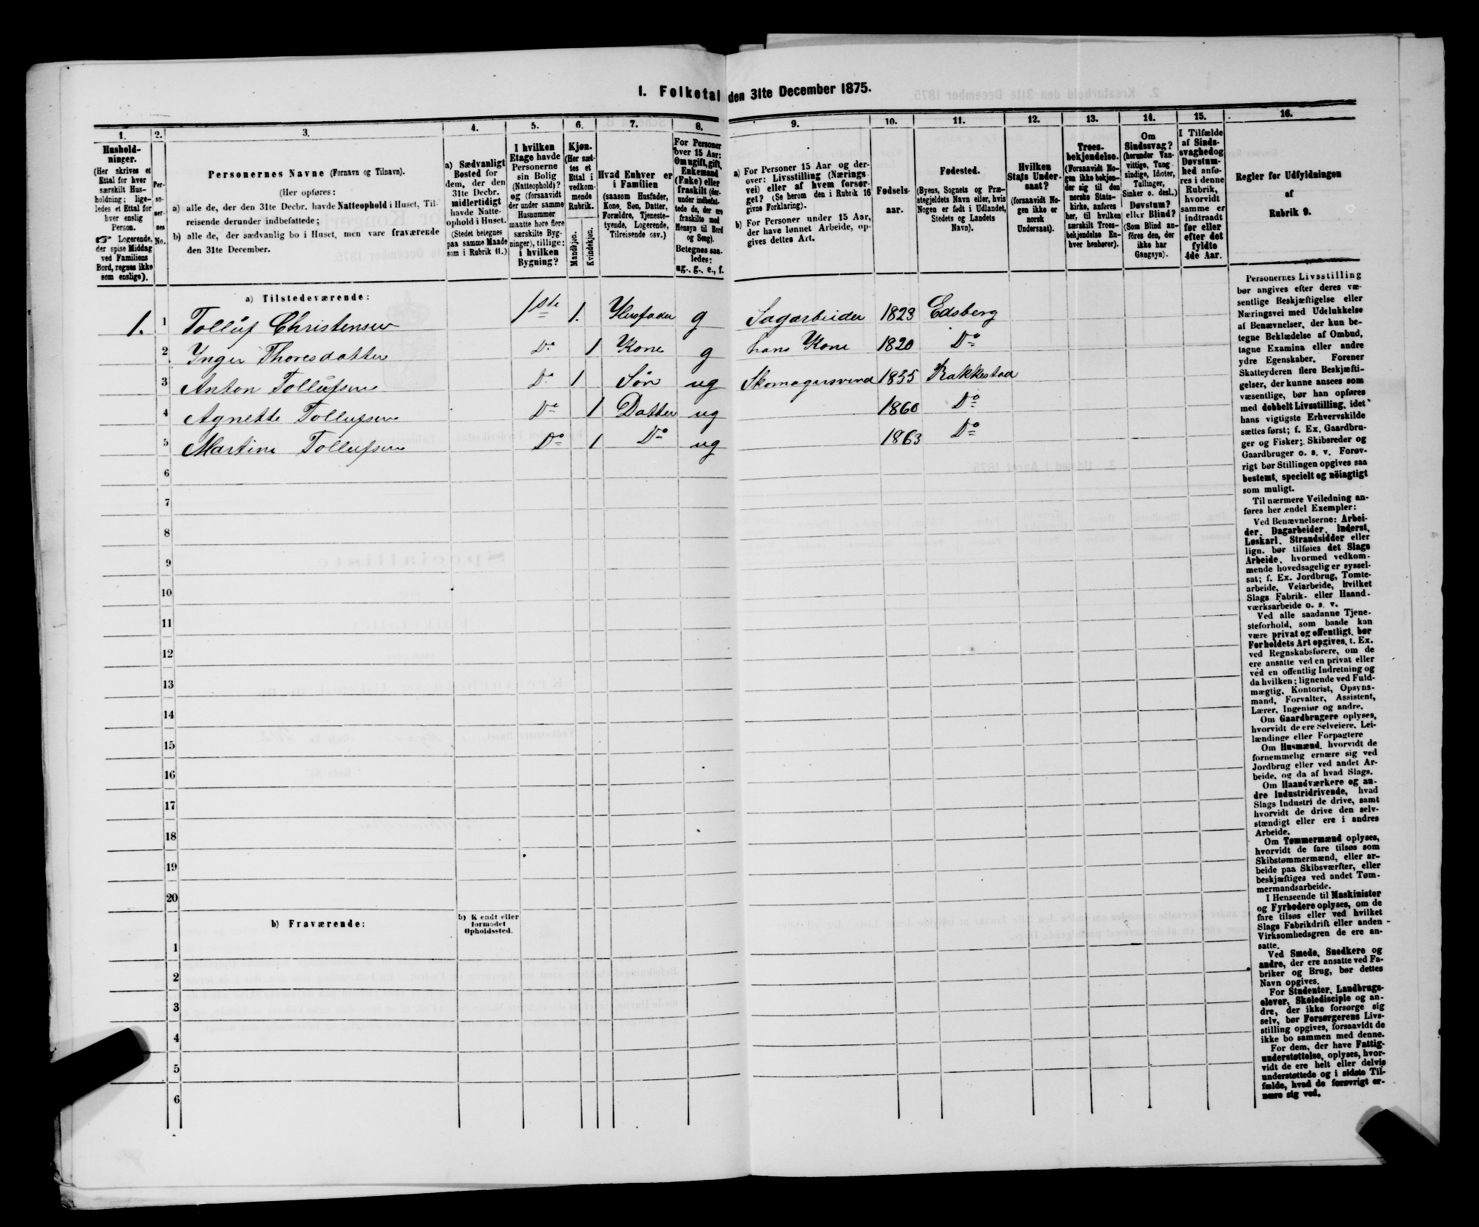 1. Folketal den 31te December 1875.
1.
Hushold-
ninger.
(Her skrives et
Ettal for hver
særskilt Hus-
holdning; lige-
ledes et Ettal for
hver enslig
Person.
☞ Logerende,
der spise Middag
ved Familiens
Bord, regnes ikke
som enslige).
2.
Per-
so-
ner-
nes
No.
3.
Personernes Navne (Fornavn og Tilnavn).
(Her opføres:
a) alle de, der den 31te Decbr. havde Natteophold i Huset, Til-
reisende derunder indbefattede;
b) alle de, der sædvanlig bo i Huset, men vare fraværende
den 31te December.
4.
a) Sædvanligt
Bosted for
dem, der den
31te Decbr.
midlertidigt
havde Natte-
ophold i Huset.
(Stedet betegnes
paa samme Maade
som i Rubrik 11.)
5.
I hvilken
Etage havde
Personerne
sin Bolig
(Natteophold)?
og (forsaavidt
der under samme
Husnummer
maatte høre flere
særskilte Byg-
ninger), tillige:
i hvilken
Bygning?
6.
Kjøn.
(Her sæt-
tes et
Ettal i
vedkom-
mende
Rubrik.
Mandkjøn.
Kvindekjøn.
7.
Hvad Enhver er
i Familien
(saasom Husfader,
Kone, Søn, Datter,
Forældre, Tjeneste-
tyende, Logerende,
Tilreisende osv.)
8.
For Personer
over 15 Aar:
Om ugift, gift,
Enkemand
(Enke) eller
fraskilt (der-
under indbefat-
tede de, der ere
fraskilte med
Hensyn til Bord
og Seng).
Betegnes saa-
ledes:
ug., g., e., f.
9.
a) For Personer 15 Aar og der-
over: Livsstilling (Nærings-
vei) eller af hvem forsør-
get? (Se herom den i Rubrik 16
givne Forklaring).
b) For Personer under 15 Aar,
der have lønnet Arbeide, op-
gives dettes Art.
10.
Fødsels-
aar.
11.
Fødested.
(Byens, Sognets og Præ-
stegjeldets Navn eller, hvis
Nogen er født i Udlandet,
Stedets og Landets
Navn).
12.
Hvilken
Stats Under-
saat?
(forsaavidt No-
gen ikke er
norsk
Undersaat).
13.
Troes-
bekjendelse.
(Forsaavidt No-
gen ikke bekjen-
der sig til den
norske Stats-
kirke, anføres
her, til hvilken
særskilt Troes-
bekjendelse En-
hver henhører).
14.
Om
Sindssvag?
(herunder Van-
vittige, Tung-
sindige, Idioter,
Tullinger,
Sinker o. desl.)
Døvstum?
eller Blind?
(Som Blind an-
føres den, der
ikke har
Gangsyn).
15.
I Tilfælde
af Sinds-
svaghed og
Døvstum-
hed anfø-
res i denne
Rubrik,
hvorvidt
samme er
indtraadt
før eller
efter det
fyldte
4de Aar.
16.
Regler for Udfyldningen
af
Rubrik 9.
a) Tilstedeværende:
1. 1 Tolluf Christensen 1ste 1. Husfader g Sagarbeider 1823 Edsberg
2 Inger Thoresdatter Do 1 Kone g hans Kone 1820 Do
3 Anton Tollufsen Do 1 Søn ug Skomagersvend 1855 Rakkestad
4 Agnette Tollufsen Do 1 Datter ug 1860 Do
5 Martine Tollufsen Do 1 Do ug 1863 Do
6
7
8
9
10
11
12
13
14
15
16
17
18
19
20
b) Fraværende:
b) Kjendt eller
formodet
Opholdssted.
1
2
3
4
5
6
Personernes Livsstilling
bør angives efter deres væ-
sentlige Beskjæftigelse eller
Næringsvei med Udelukkelse
af Benævnelser, der kun be-
tegne Beklædelse af Ombud,
tagne Examina eller andre
ydre Egenskaber. Forener
Skatteyderen flere Beskjæfti-
gelser, der kunne ansees som
væsentlige, bør han opføres
med dobbelt Livsstilling, idet
hans vigtigste Erhvervskilde
sættes først; f. Ex. Gaardbru-
ger og Fisker; Skibsreder og
Gaardbruger o. s. v. Forøv-
rigt bør Stillingen opgives saa
bestemt, specielt og nöiagtigt
som muligt.
Til nærmere Veiledning an-
føres her endel Exempler:
Ved Benævnelserne: Arbei-
der, Dagarbeider, Inderst,
Løskarl, Strandsidder eller
lign. bør tilføies det Slags
Arbeide, hvormed vedkom-
mende hovedsagelig er syssel-
sat; f. Ex. Jordbrug, Tomte-
arbeide, Veiarbeide, hvilket
Slags Fabrik- eller Haand-
værksarbeide o. s. v.
Ved alle saadanne Tjene-
steforhold, som baade kan
være privat og offentligt, bør
Forholdets Art opgives, t. Ex.
ved Regnskabsførere, om de
ere ansatte ved en privat eller
ved en offentlig Indretning og
da hvilken; lignende ved Fuld-
mægtig, Kontorist, Opsyns-
mand, Forvalter, Assistent,
Lærer, Ingeniør og andre.
Om Gaardbrugere oplyses,
hvorvidt de ere Selveiere, Lei-
lændinge eller Forpagtere
Om Husmænd, hvorvidt de
fornemmelig ernære sig ved
Jordbrug eller ved andet Ar-
beide, og da af hvad Slags.
Om Haandværkere og an-
dre Industridrivende, hvad
Slags Industri de drive, samt
hvorvidt de drive den selv-
stændigt eller ere i andres
Arbeide.
Om Tømmermænd oplyses,
hvorvidt de fare tilsøs som
Skibstømmermænd, eller ar-
beide paa Skibsværfter, eller
beskjæftiges ved andet Tøm-
mermandsarbeide.
I Henseende til Maskinister
og Fyrbødere oplyses, om de
fare tilsøs eller ved hvilket
Slags Fabrikdrift eller anden
Virksomhedsgren de ere an-
satte.
Ved Smede, Snedkere og
andre, der ere ansatte ved Fa-
briker og Brug, bør dettes
Navn opgives.
For Studenter, Landbrugs-
elever, Skoledisciple og an-
dre, der ikke forsørge sig
selv, bør Forsørgerens Livs-
stilling opgives, forsaavidt de
ikke bo sammen med denne.
For dem, der have Fattig-
understøttelse, oplyses, hvor-
vidt de ere helt eller delvis
understøttede og i sidste Til-
fælde, hvad de forøvrigt er-
nære sig ved.